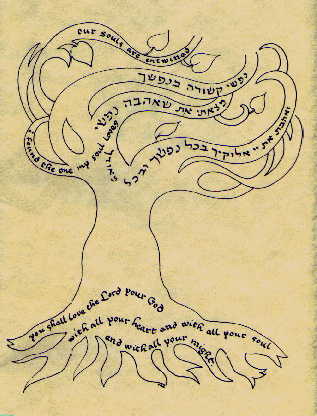 our souls are entwined
נפשי קשורה בנפשך
מצאתי את שאהבה נפשי
ואהבת את יי אלוקיך בכל נפשך ובכל
I found the one my soul loves
you shall love the Lord your God
with all your heart and with all your soul
and with all your might